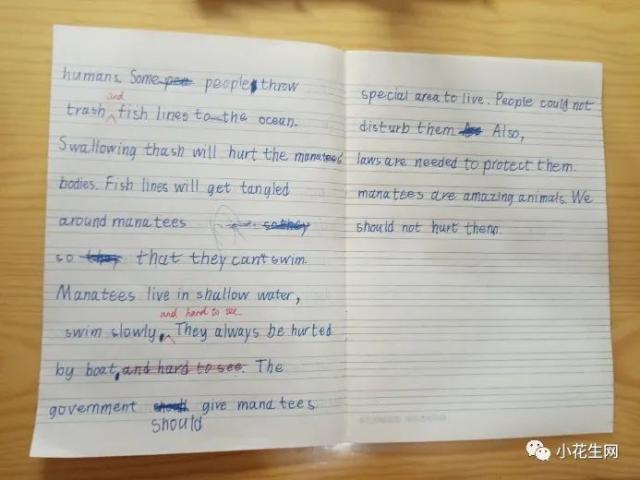 humans. Some people throw
and
trash fish lines to the ocean.
Swallowing thash will hurt the manatees
bodies. Fish lines will get tangled
around manatees
so that they can't swim.
Manatees live in shallow water,
and hard to see
swim slowly. They always be hurted
by boat, and hard to see. The
government give manatees
should
special area to live. People could not
disturb them Also,
laws are needed to protect them.
manatees are amazing animals. We
should not hurt them.
小花生网